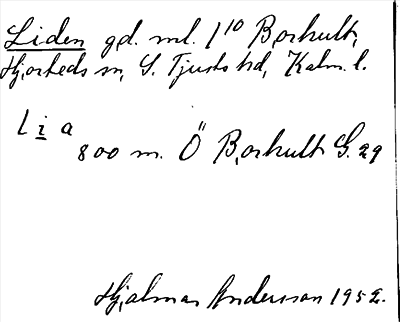 Liden gd. ml. 1/10 Björkult,
Hjorteds sn, S. Tjusts hd, Kalm. l.
Lia
800 m. Ö Björkult G. 29
Hjalmar Andersson 1952.